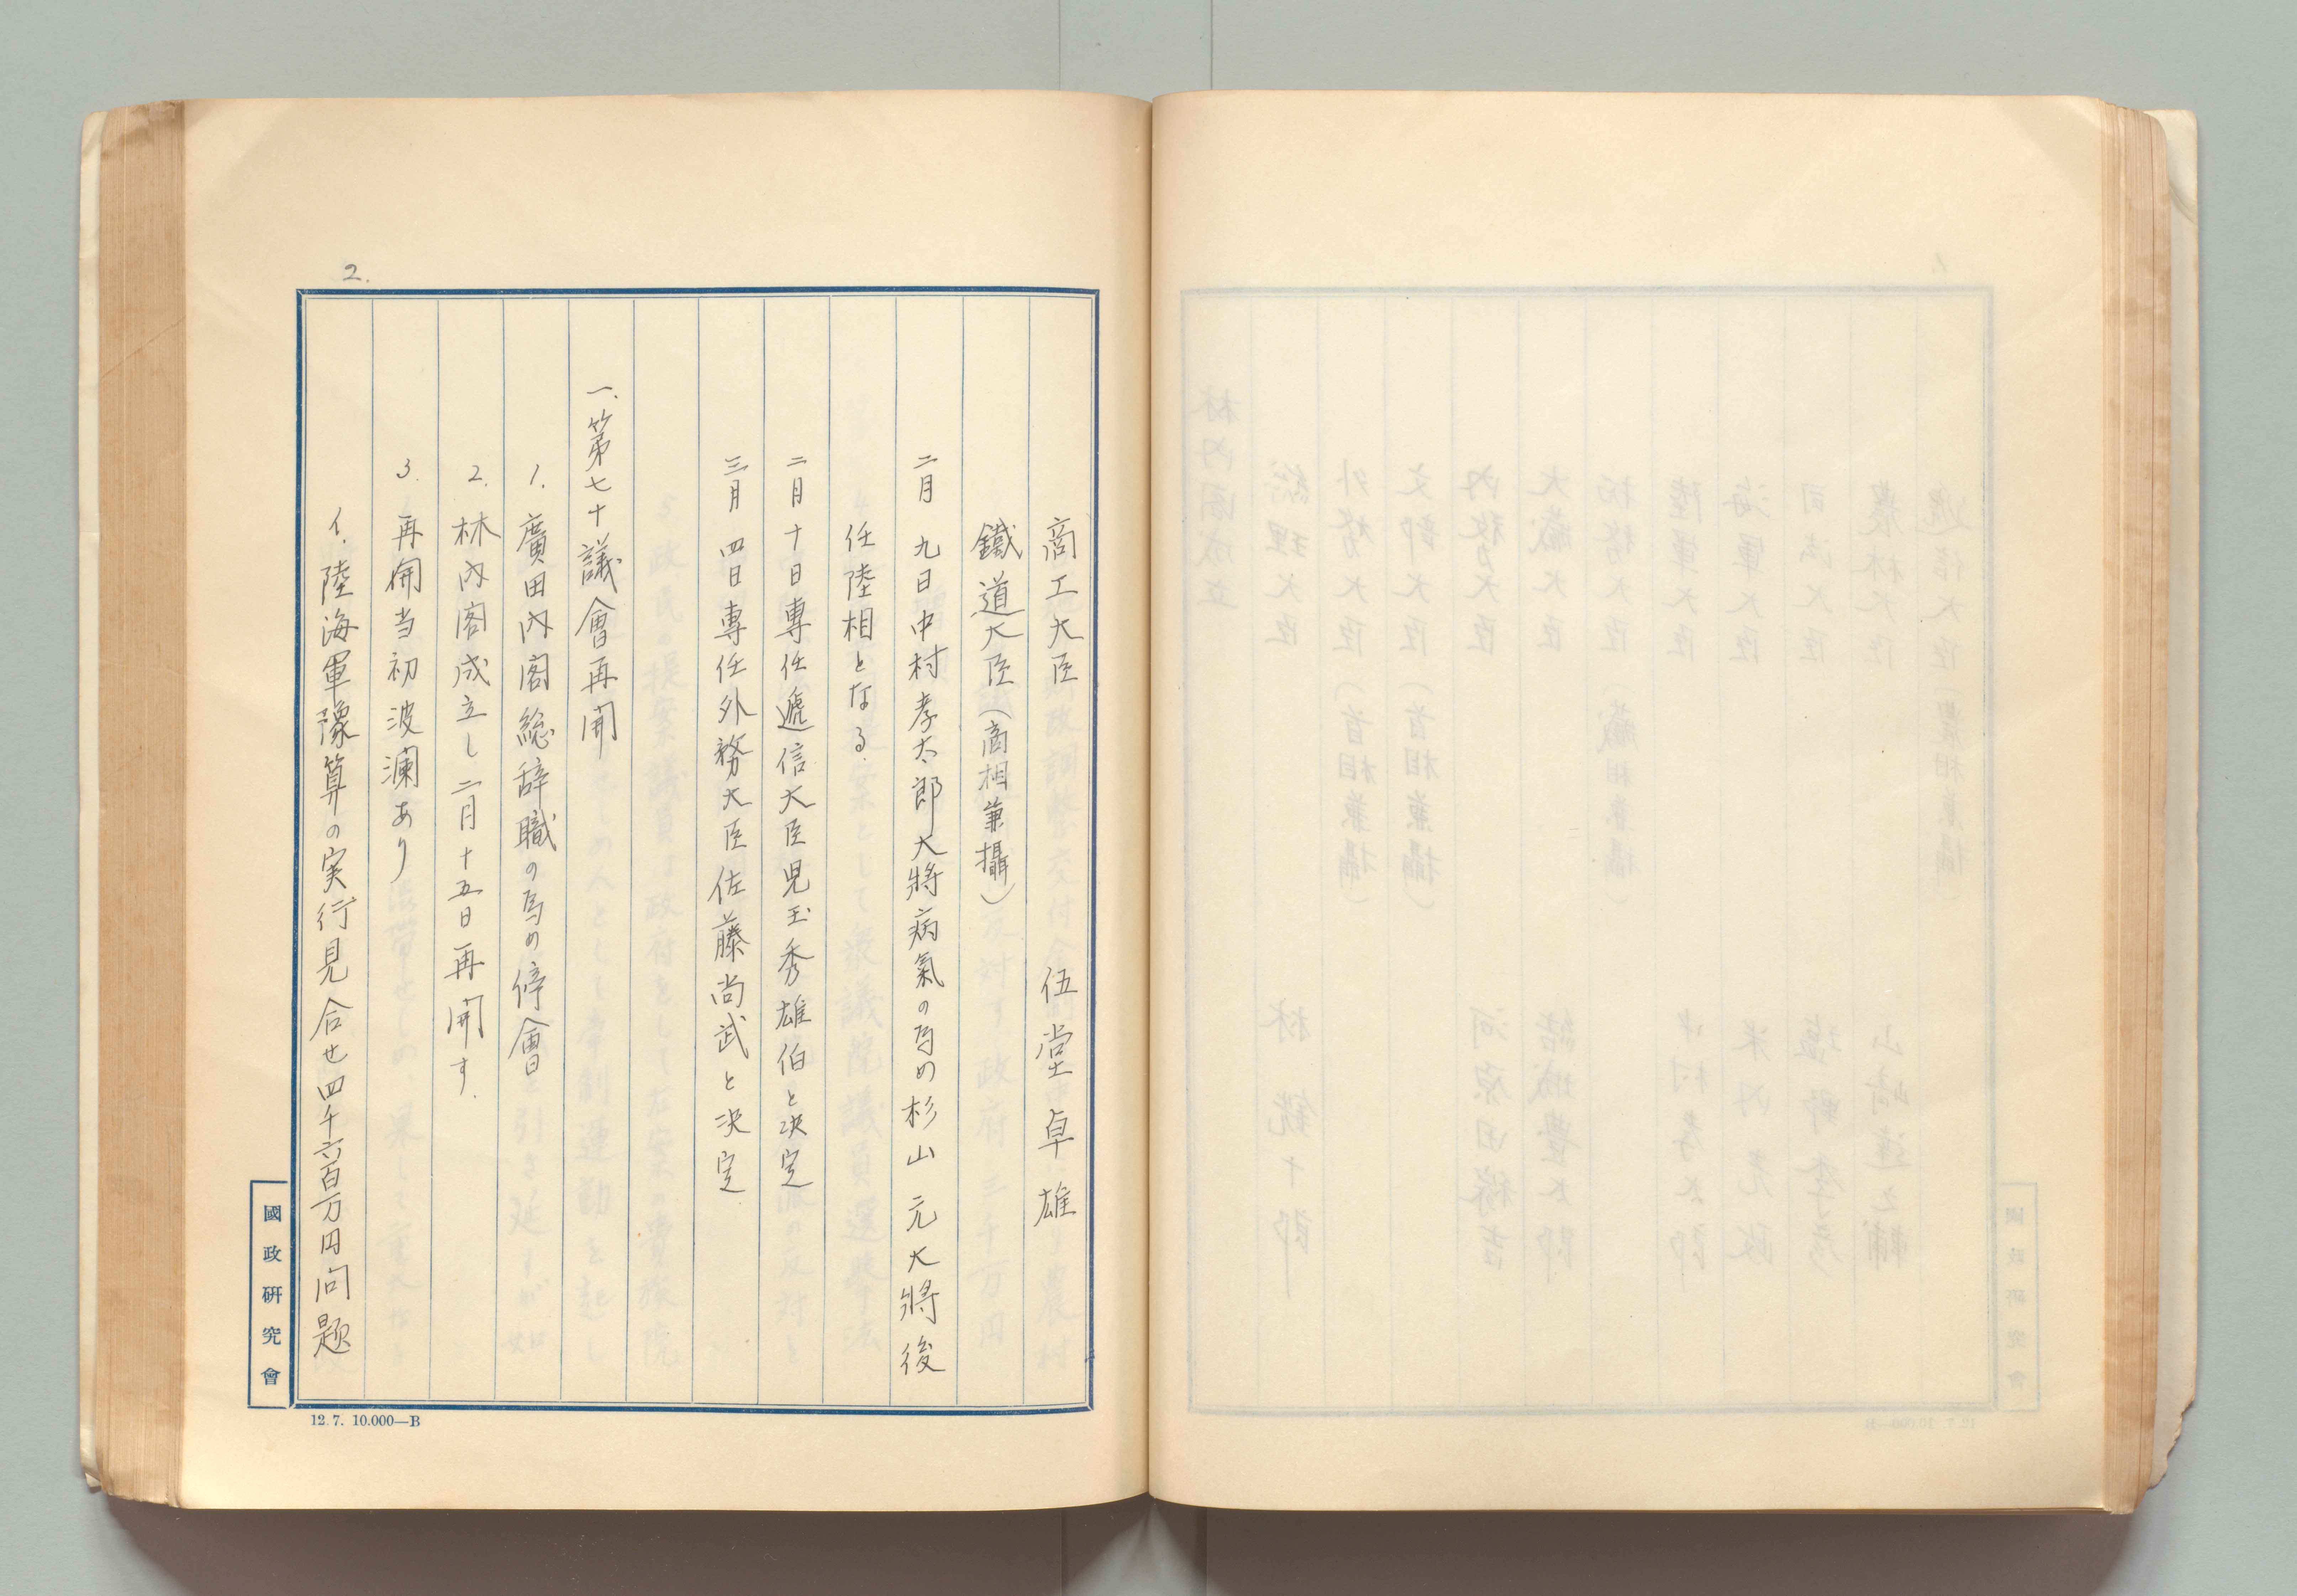 2.
商工大臣 伍堂卓雄
鐵道大臣（商相兼攝）
二月九日中村孝太郎大將病氣の為め杉山元大將後
任陸相となる.
二月十日專任遞信大臣児玉秀雄伯と決定
三月四日專任外務大臣佐藤尚武と決定.
一.第七十議會再開
1.廣田内閣総辞職の為め停會
2.林内閣成立し二月十五日再開す.
3.再開当初波瀾あり
イ.陸海軍豫算の実行見合せ四千六百万円問題
國政研究會
12.7. 10.000—B